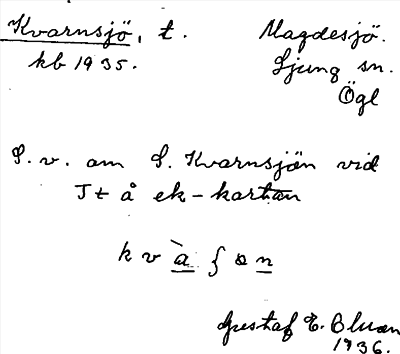 Kvarnsjö, t. Magdesjö.
kb 1935. Ljung sn.
Ögl
S. v. om S. Kvarnsjön vid
It å ek-kartan
Gustaf E. Bluan
1936.